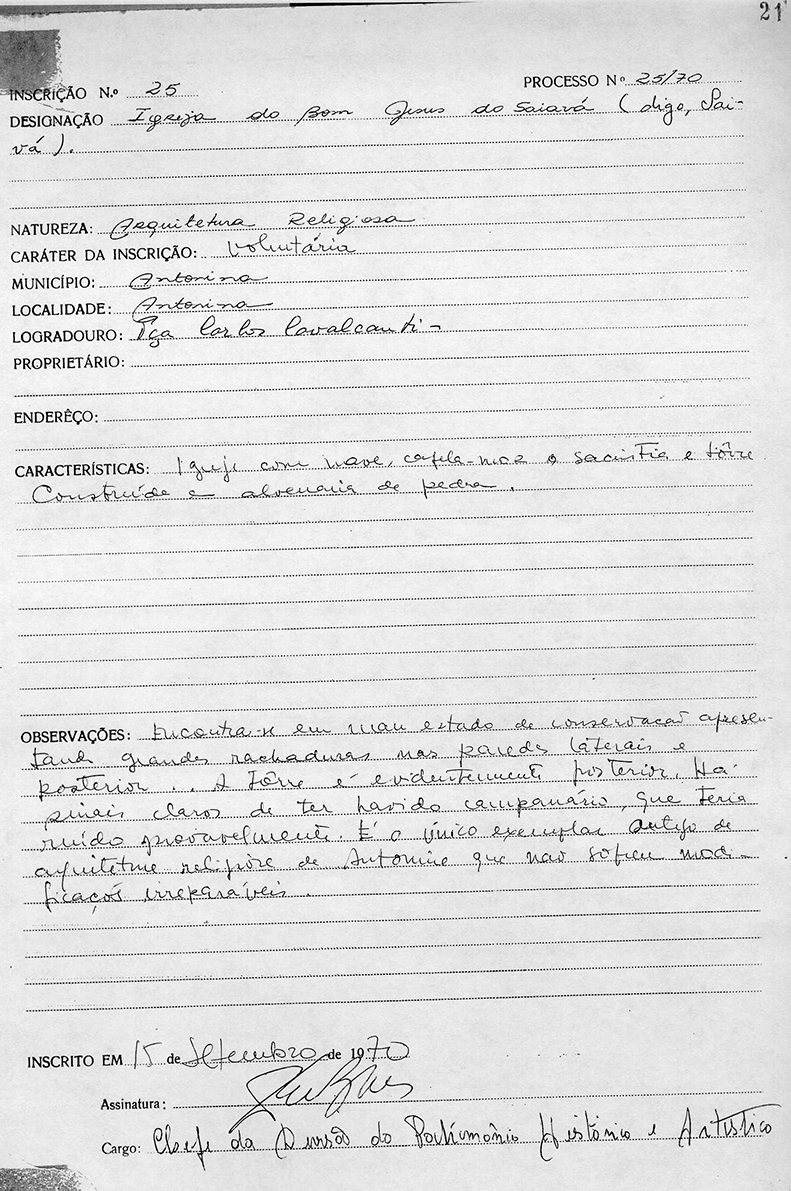 21
INSCRIÇÃO N.o 25 PROCESSO No 25/70
DESIGNAÇÃO Igreja do Bom Jesus do Saiavá (digo, Sai-
vá).
NATUREZA: Arquitetura Religiosa
CARÁTER DA INSCRIÇÃO: Voluntária
MUNICÍPIO: Antonina
LOCALIDADE: Antonina
LOGRADOURO: Pça Carlos Cavalcanti -
PROPRIETÁRIO:
ENDERÊÇO:
CARACTERÍSTICAS: Igreja com nave, capela-mor e sacristia e tôrre
Construída e alvenaria de pedra.
OBSERVAÇÕES: Encontra-se em mau estado de conservação apresen-
tando grandes rachaduras nas paredes láterais e
posterior.. A tôrre é evidentemente posterior. Há
sinais claros de ter havido campanário, que teria
ruído provavelmente. É o único exemplar antigo de
arquitetura religiosa de Antonina que não sofreu modi-
ficações irreparáveis.
INSCRITO EM 15 de Setembro de 1970
Assinatura:
Cargo: Chefe da Divisão do Patrimônio Histórico e Artístico